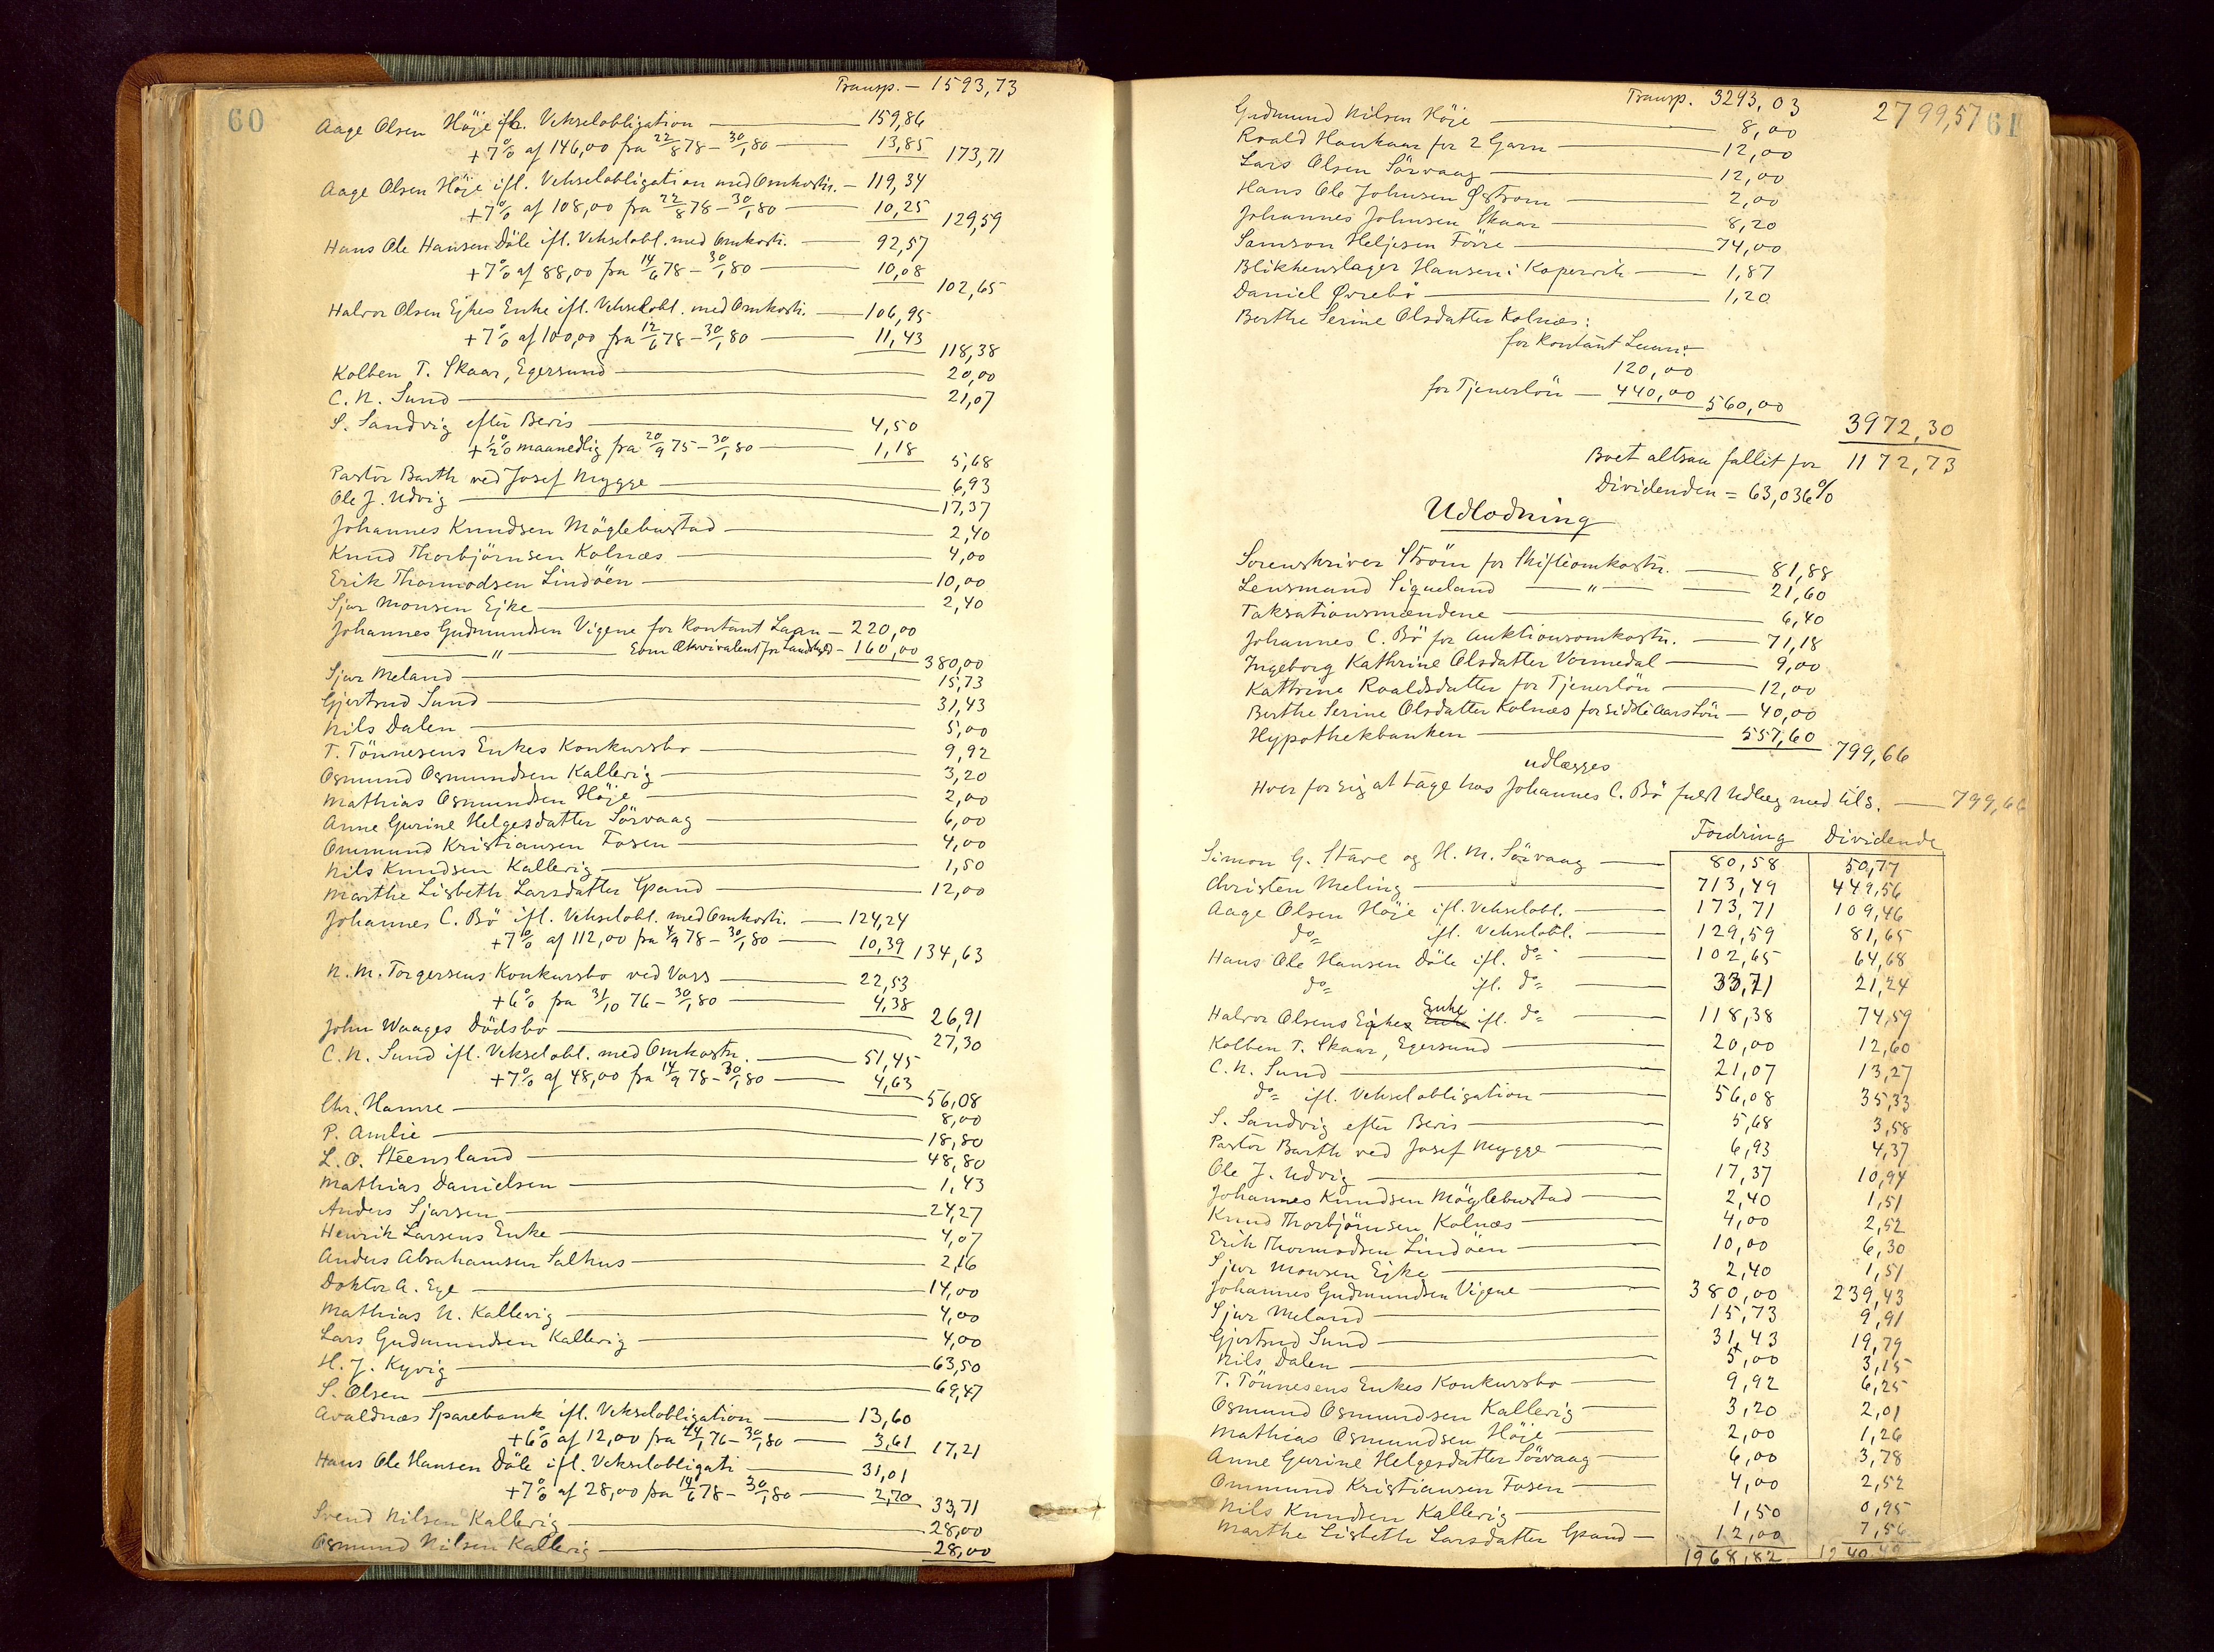 60
Transp. — 1593,73
Aage Olsen Höje ifl. Vekselobligation — 159,86
+ 7% af 146,00 fra 22/8 78 – 30/1 80 — 13,85 173,71
Aage Olsen Höje ifl. Vekselobligation med Omkostn. — 119,34
+ 7% af 108,00 fra 22/8 78 – 30/1 80 — 10,25 129,59
Hans Ole Hansen Döle ifl. Vekselobl. med Omkostn. — 92,57
+ 7% af 88,00 fra 14/6 78 – 30/1 80 — 10,08 102,65
Halvor Olsen Ejkes Enke ifl. Vekselobl. med Omkostn. — 106,95
+ 7% af 100,00 fra 12/6 78 – 30/1 80 — 11,43 118,38
Kolben T. Skaar, Egersund — 20,00
C. N. Sund — 21,07
S. Sandvig efter Bevis — 4,50
+ 1/2% maanedlig fra 20/9 75 – 30/1 80 — 1,18 5,68
Pastor Barth ved Josef Mygge — 6,93
Ole J. Udvig — 17,37
Johannes Knudsen Möglebustad — 2,40
Knud Thorbjörnsen Kolnæs — 4,00
Erik Thormodsen Lindöen — 10,00
Sjur Monsen Ejke — 2,40
Johannes Gudmundsen Vigene for kontant Laan — 220,00
— " — Som Ækvivalent for Landskyld — 160,00 380,00
Sjur Meland — 15,73
Gjertrud Sund — 31,43
Nils Dalen — 5,00
T. Tönnesens Enkes Konkursbo — 9,92
Osmund Osmundsen Kallevig — 3,20
Mathias Osmundsen Höje — 2,00
Anne Gurine Helgesdatter Sörvaag — 6,00
Ommund Kristiansen Fosen — 4,00
Nils Knudsen Kallevig — 1,50
Marthe Lisbeth Larsdatter Gpand — 12,00
Johannes C. Bö ifl. Vekselobl. med Omkostn. — 124,24
+ 7% af 112,00 fra 4/9 78 – 30/1 80 — 10,39 134,63
N. M. Torgersens Konkursbo ved Vors — 22,53
+ 6% fra 31/10 76 – 30/1 80 — 4,38 26,91
John Waages Dödsbo — 27,30
C. N. Sund ifl. Vekselobl. med Omkostn. — 51,45
+ 7% af 48,00 fra 14/9 78 – 30/1 80 — 4,63 56,08
Chr. Hamre — 8,00
P. Amlie — 18,80
L. O. Steensland — 48,80
Mathias Danielsen — 1,43
Anders Sjursen — 24,27
Henrik Larsens Enke — 4,07
Anders Abrahamsen Salhus — 2,16
Doktor A. Ege — 14,00
Mathias N. Kallevig — 4,00
Lars Gudmundsen Kallevig — 4,00
H. J. Kyvig — 63,50
S. Olsen — 69,47
Avaldnæs Sparebank ifl. Vekselobligation — 13,60
+ 6% af 12,00 fra 24/1 76 – 30/1 80 — 3,61 17,21
Hans Ole Hansen Döle ifl. Vekselobligati — 31,01
+ 7% af 28,00 fra 14/6 78 – 30/1 80 — 2,70 33,71
Svend Nilsen Kallevig — 28,00
Osmund Nilsen Kallevig — 28,00
Transp. 3293,03 2799,57 61
Gudmund Nilsen Höje — 8,00
Roald Haukaas for 2 Garn — 12,00
Lars Olsen Sörvaag — 12,00
Hans Ole Johnsen Østrom — 2,00
Johannes Johnsen Skaar — 8,20
Samson Heljesen Förre — 74,00
Blikkenslager Hansen i Kopervik — 1,87
Daniel Øvrebö — 1,20
Berthe Serine Olsdatter Kolnæs:
for kontant Laan:
120,00
for Tjenerlön — 440,00 560,00
3972,30
Boet altsaa fallit for 1172,73
Dividenden = 63,036%
Udlodning
Sorenskriver Ström for Skifteomkostn. — 81,88
Lensmand Sigueland — " — 21,60
Taksationsmændene — 6,40
Johannes C. Bö for Auktionsomkostn. — 71,18
Ingeborg Kathrine Olsdatter Vormedal — 9,00
Kathrine Roaldsdatter for Tjenerlön — 12,00
Berthe Serine Olsdatter Kolnæs for sidste Aars Lön — 40,00
Hypothekbanken — 557,60 799,66
udlægges
Hver for sig at tage hos Johannes C. Bö fuldt Udlæg med tils. — 799,66
Fordring Dividende
Simon G. Stave og H. M. Sörvaag — 80,58 50,77
Christen Meling — 713,49 449,56
Aage Olsen Höje ifl. Vekselobl. — 173,71 109,46
do= ifl. Vekselobl. — 129,59 81,65
Hans Ole Hansen Döle ifl. do= — 102,65 64,68
do= ifl. do= — 33,71 21,24
Halvor Olsens Ejkes Enke ifl. do= — 118,38 74,59
Kolben T. Skaar, Egersund — 20,00 12,60
C. N. Sund — 21,07 13,27
do= ifl. Vekselobligation — 56,08 35,33
S. Sandvig efter Bevis — 5,68 3,58
Pastor Barth ved Josef Mygge — 6,93 4,37
Ole J. Udvig — 17,37 10,94
Johannes Knudsen Möglebustad — 2,40 1,51
Knud Thorbjörnsen Kolnæs — 4,00 2,52
Erik Thormodsen Lindöen — 10,00 6,30
Sjur Monsen Ejke — 2,40 1,51
Johannes Gudmundsen Vigene — 380,00 239,43
Sjur Meland — 15,73 9,91
Gjertrud Sund — 31,43 19,79
Nils Dalen — 5,00 3,15
T. Tönnesens Enkes Konkursbo — 9,92 6,25
Osmund Osmundsen Kallevig — 3,20 2,01
Mathias Osmundsen Höje — 2,00 1,26
Anne Gurine Helgesdatter Sörvaag — 6,00 3,78
Ommund Kristiansen Fosen — 4,00 2,52
Nils Knudsen Kallevig — 1,50 0,95
Marthe Lisbeth Larsdatter Gpand — 12,00 7,56
1968,82 1240,49